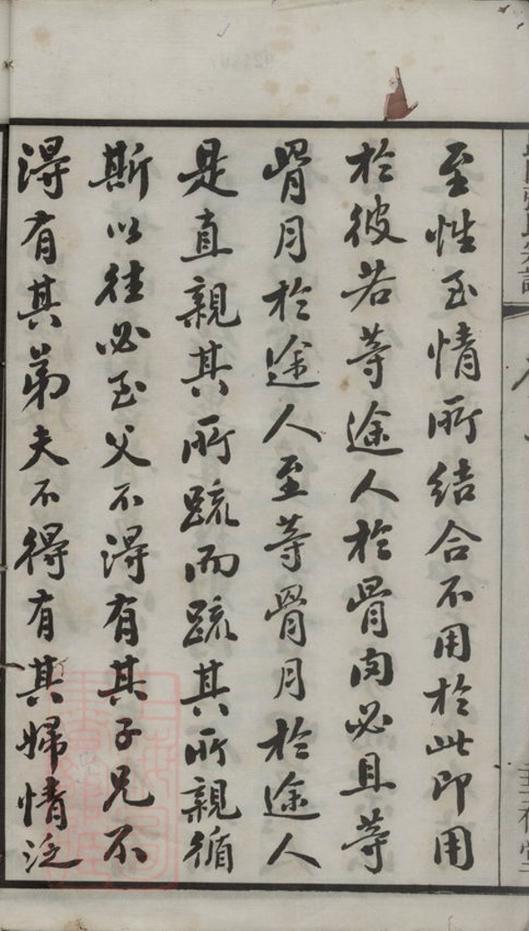 至性至情所結合不用於此即用
於彼若等途人於骨肉必且等
骨月於途人至等骨月於途人
是直親其所疏而疏其所親循
斯以往必至父不得有其子兄不
得有其弟夫不得有其婦情泛